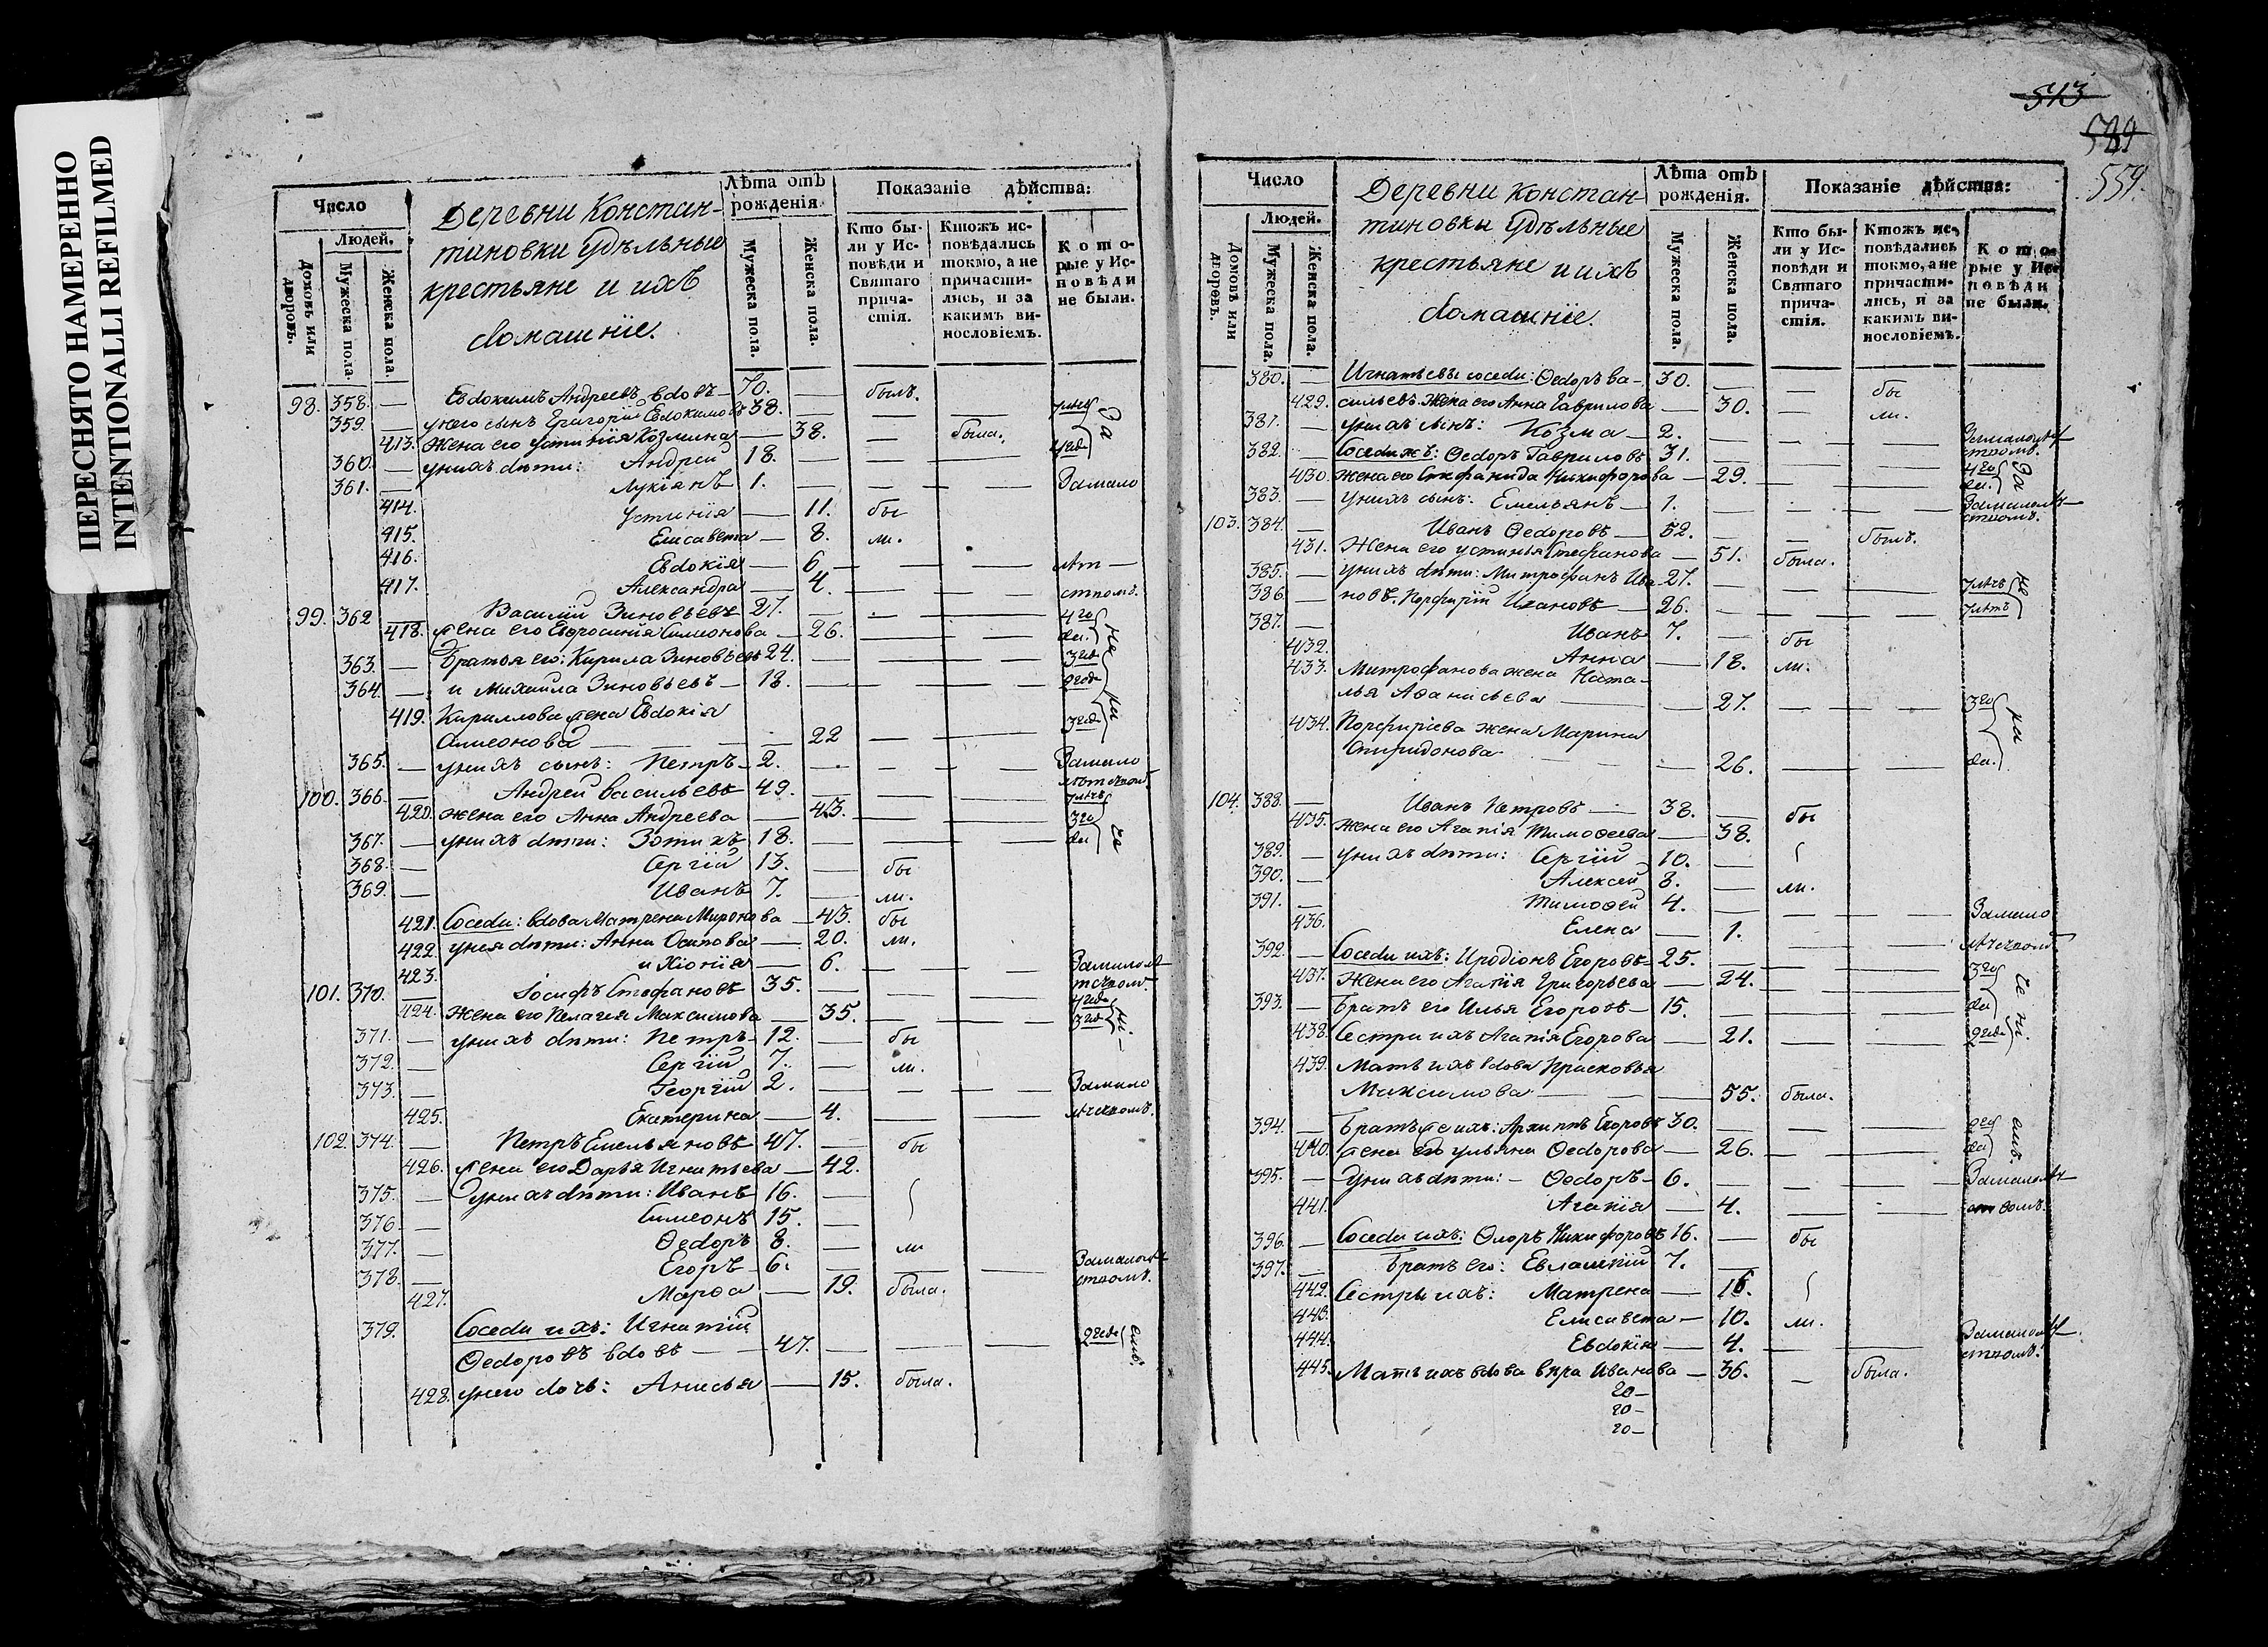 ПЕРЕСНЯТО НАМЕРЕННО
INTENTIONALLI REFILMED
Число
Людей.
Домовъ или дворовъ.
Мужеска пола.
Женска пола.
Деревни Констан-
тиновки Удѣльные
крестьяне и ихъ
домашніе.
Лѣта отъ
рожденія.
Мужеска пола.
Женска пола.
Показаніе дѣйства:
Кто бы-
ли у Ис-
повѣди и
Святаго
прича-
стія.
Ктожъ ис-
повѣдались
токмо, а не
причасти-
лись, и за
какимъ ви-
нословіемъ.
Кото-
рые у Ис-
повѣди
не были.
98. 358. — Евдокимъ Андреевъ вдовъ — 70. — былъ.
359. — у него сынъ Григорій Евдокимовъ 38. — — — 7 лѣтъ За
413. Жена его Устинія Козмина — 38. — была.
360. — у нихъ дѣти: Андрей 18. — — — 4 год
361. — Лукіянъ 1. — — — За мало
414. Устинія — 11. бы
415. Елисавета — 8. ли.
416. Евдокія — 6. — — лѣт —
417. Александра — 4. — — ствомъ.
99. 362 Василій Зиновьевъ 27. — — — 4 го
418. Жена его Евфросинія Симеонова — 26. — — да. не
363. — Братья его: Кирила Зиновьевъ 24. — — — 3 года
364. — и Михаила Зиновьевъ — 18. — — — 2 года ра
419. Кириллова жена Евдокія
Симеонова — — — 22 — — 3 года
365. — у нихъ сынъ: Петръ — 2. — — — За мало
лѣтствомъ.
100. 366. — Андрей Васильевъ 49. — — — 7 лѣтъ
420. жена его Анна Андреева — 43. — — 3 го
367. — у нихъ дѣти: Зотикъ 18. — — — да
368. — Сергій 13. — бы
369. — Иванъ 7. — ли.
421. Соседи: вдова Матрена Миронова — 43. бы
422. у нея дѣти: Анна Осипова — 20. ли.
423. и Хіонія — 6. — — За малолѣ
тствомъ.
101. 370. — Іосифъ Стефановъ 35. — — — 4 года
424. жена его Пелагея Максимова — 35. — — 3 год ни.
371. — у нихъ дѣти: Петръ — 12. — бы
372. — Сергій 7. — ли.
373. — Георгій 2. — — — За мало
425. Екатерина — 4. — — лѣтствомъ.
102. 374. — Петръ Емельяновъ 47. — бы
426. Жена его Дарья Игнатьева — 42.
375. — У нихъ дѣти: Иванъ 16. —
376. — Симеонъ 15. —
377. — Ѳедоръ 8. — ли
378. — Егоръ — 6. — — — За малолѣ
ствомъ.
427. Марѳа — 19. была.
379. Соседи ихъ: Игнатій
Ѳедоровъ вдовъ — — 47. — — — 2 года
428. у него дочь: Анисья — 15. была.
513
559.
Число
Людей.
Домовъ или дворовъ.
Мужеска пола.
Женска пола.
Деревни Констан-
тиновки Удѣльные
крестьяне и ихъ
домашніе.
Лѣта отъ
рожденія.
Мужеска пола.
Женска пола.
Показаніе дѣйства:
Кто бы-
ли у Ис-
повѣди и
Святаго
прича-
стія.
Ктожъ ис-
повѣдались
токмо, а не
причасти-
лись, и за
какимъ ви-
нословіемъ.
Кото-
рые у Ис-
повѣди
не были.
380. — Игнатьевы соседи: Ѳедоръ Ва- 30. — — бы
429. сильевъ. Жена его Анна Гаврилова — 30. — ли.
381. — у нихъ сынъ: Козма — 2. — — — За малолѣ
ствомъ.
382. — Соседи жъ: Ѳедоръ Гавриловъ 31. — — — 4 го
430. жена его Стефанида Никифорова — 29. — — да. За
383. — у нихъ сынъ: Емельянъ — 1. — — — За малолѣт
ствомъ.
103. 384. — Иванъ Ѳедоровъ — 52. — — былъ.
431. Жена его Устинья Стефанова — 51. была.
385. — у нихъ дѣти: Митрофанъ Ива- 27. — — — 7 лѣтъ не
386. — новъ. Порфирій Ивановъ — 26. — — — 7 лѣтъ
387. — Иванъ 7. — бы
432. Анна — 18. ли.
433. Митрофанова жена Ната-
лья Аѳанасьева — 27. — — 3 го ра
434. Порфиріева жена Марина
Спиридонова — 26. — — да.
104. 388. — Иванъ Петровъ — 38. — бы
435. жена его Агапія Тимоѳеева — 38.
389. — у нихъ дѣти: Сергій 10. —
390. — Алексей 8. — ли.
391. — Тимоѳей 4. — — — За мало
436. Елена — 1. — — лѣтствомъ
392. — Соседи ихъ: Иродіонъ Егоровъ — 25. — — — 3 го
437. Жена его Агапія Григорьева — 24. — — да
393. — Братъ его Илья Егоровъ — 15. — — —
438. Сестра ихъ Агапія Егорова — 21. — — 2 года ни.
439. Мать ихъ вдова Прасковья
Максимова — — — 55. была.
394. — Братъ же ихъ: Архиппъ Егоровъ 30. — — — 2 го
440. Жена его Ульяна Ѳедорова — 26. — — да
395. — У нихъ дѣти: — Ѳедоръ — 6. — — — За малолѣт
441. Агапія — 4. — — ствомъ.
396. — Соседи ихъ: Ѳлоръ Никифоровъ 16. — бы
397. — Братъ его: Евлампій 7. —
442. Сестры ихъ: Матрена — 16.
443. Елисавета — 10. ли.
444. Евдокія — 4. — — За малолѣ
ствомъ.
445. Мать ихъ вдова Вѣра Иванова — 36. — была.
20 —
20 —
20 —